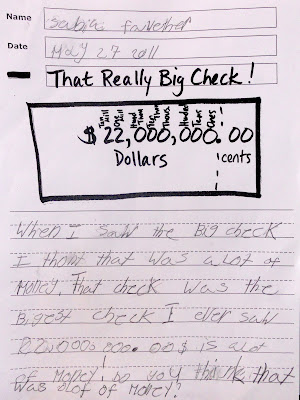 Name
Date May 27 2011
That Really Big Check!
$ 22,000,000.00
Dollars cents
When I saw the Big check
I thomt that was a Lot of
Money. That check was the
Bigest check I ever saw
is a Lot
of Money. Do you think that
was a Lot of Money?